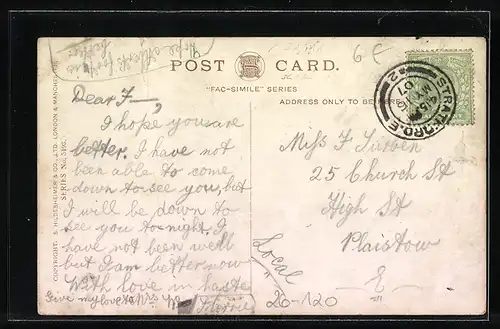 Hope Albert has
better
6 E
POST CARD.
"FAC-SIMILE" SERIES
ADDRESS ONLY TO BE HERE
STRATFORD.E
2
MY
07
COPYRIGHT. S. HILDESHEIMER & CO., LTD. LONDON & MANCHESTER
SERIES No.
Dear F—,
I hope you are
better. I have not
been able to come
down to see you, but
I will be down to
see you to-night. I
have not been well
but I am better now
With love in haste
Florrie
Give my love to
Miss F Turben
25 Church St
High St
Plaistow
E
Local
20-120